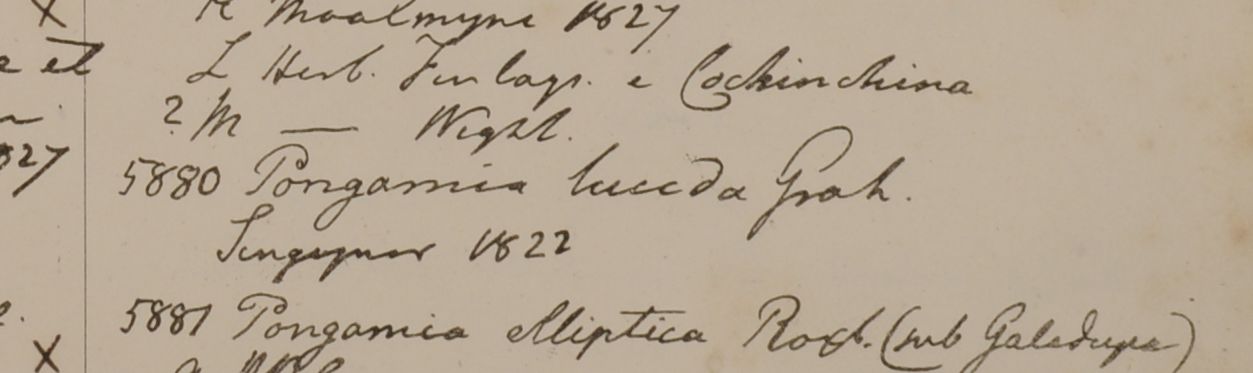 K Moalmyne 1827
e et L Herb. Finlays. e Cochinchina
? M — Wight.
827 5880 Pongamia lucida Grah.
Singapur 1822
5881 Pongamia elliptica Roxb. (sub Galedupa)
X